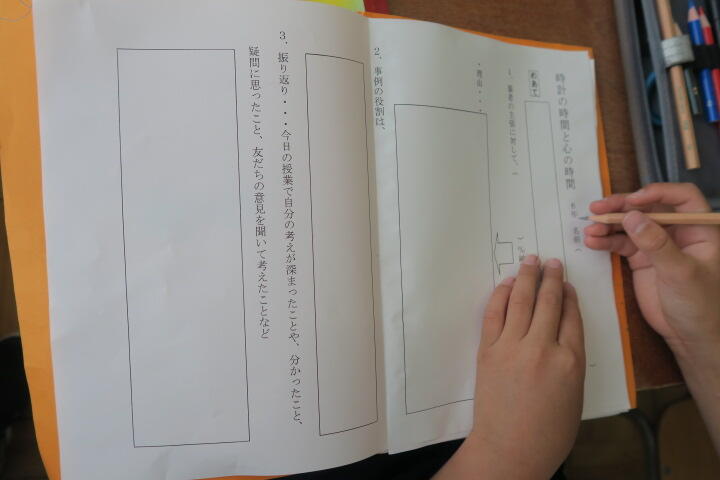 時計の時間と心の時間
名前（
めあて
1．筆者の主張に対して、（
）％
・理由・・・
2．事例の役割は、
3．振り返り・・・今日の授業で自分の考えが深まったことや、分かったこと、
疑問に思ったこと、友だちの意見を聞いて考えたことなど